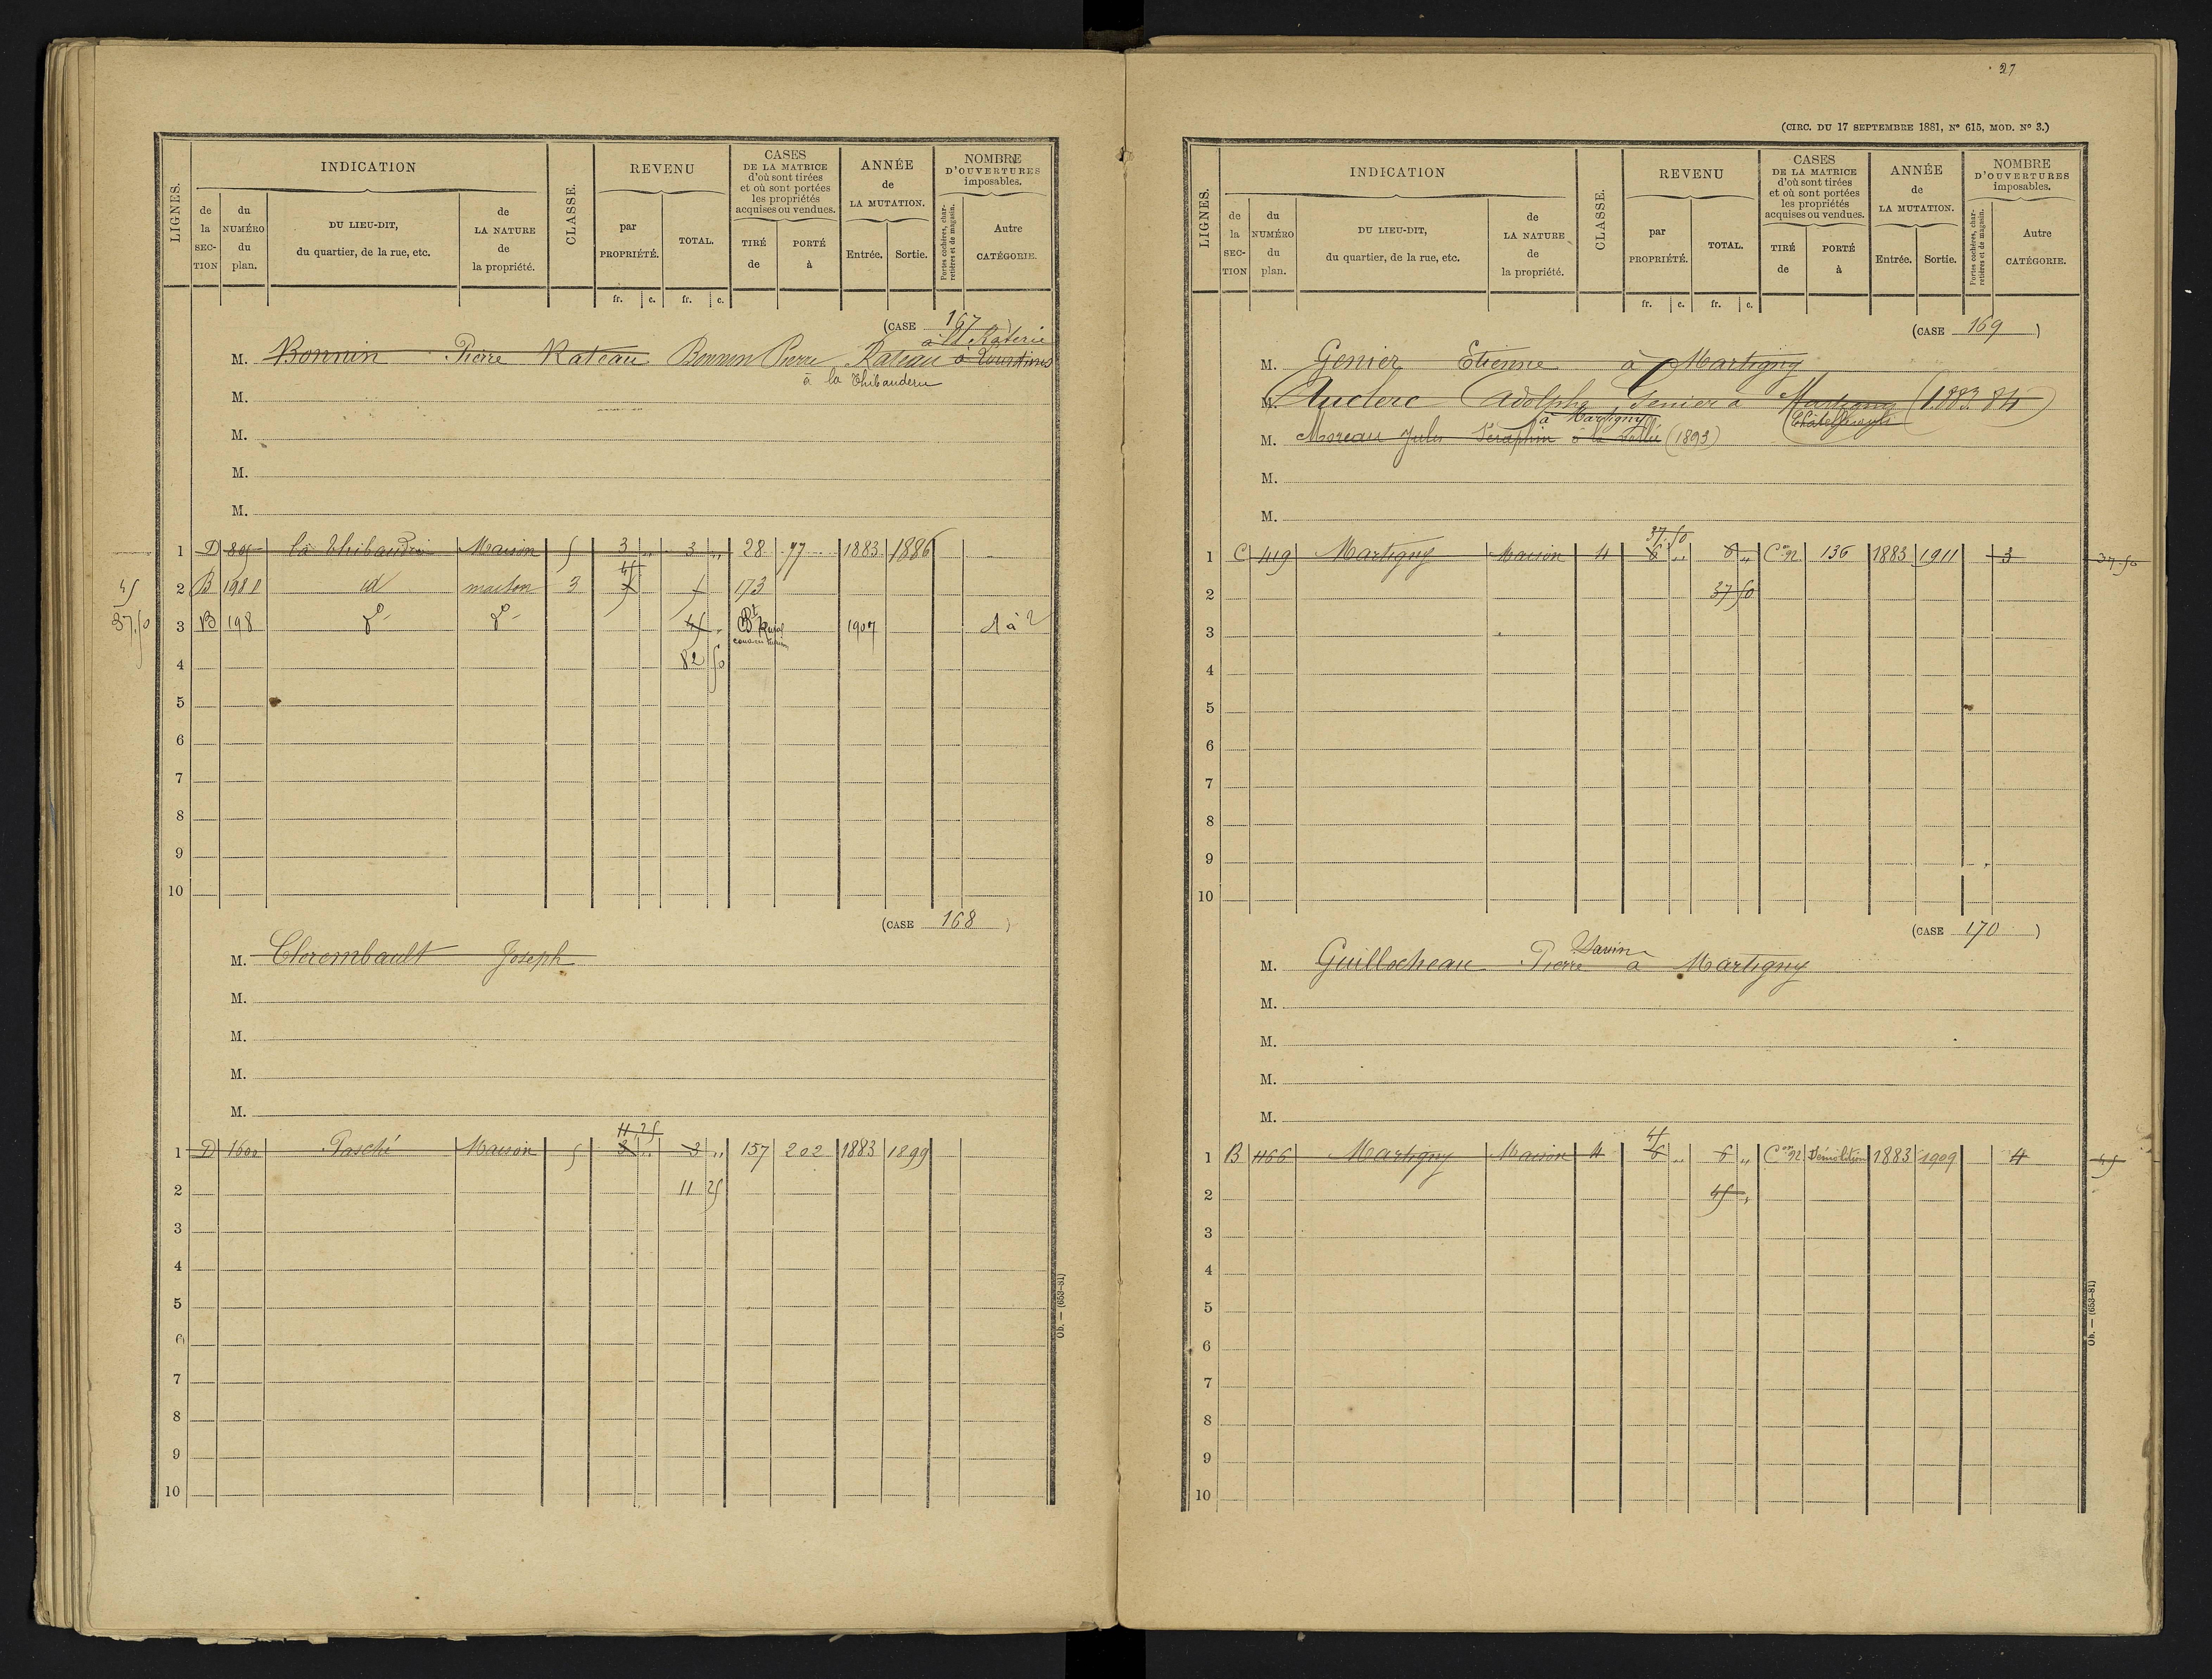 LIGNES.
INDICATION
de la SECTION
du NUMÉRO du plan.
DU LIEU-DIT, du quartier, de la rue, etc.
de LA NATURE de la propriété.
CLASSE.
REVENU
par PROPRIÉTÉ.
TOTAL.
CASES DE LA MATRICE d'où sont tirées et où sont portées les propriétés acquises ou vendues.
TIRÉ de
PORTÉ à
ANNÉE de LA MUTATION.
Entrée.
Sortie.
NOMBRE D'OUVERTURES imposables.
Portes cochères, charretières et de magasin.
Autre CATÉGORIE.
fr. c. fr. c.
(CASE 167)
M. Bonnin Pierre Rateau Bonnin Pierre Rateau
à la Thibauderie
M.
M.
M.
M.
1 D 895 la Thibaudrie Maison 5 3 „ 3 „ 28 77 1883 1886
45 2 B 198 id maison 3 45 173
37.50 3 B 198 do do 45 Bt Rural 1907 1 à 2
4 82 50
5
6
7
8
9
10
(CASE 168)
M. Clerembault Joseph
M.
M.
M.
M.
11,25
1 D 1600 Pasché Maison 5 3 „ 3 „ 157 202 1883 1899
2 11 25
3
4
5
6
7
8
9
10
Ob. — (653-81)
27
(CIRC. DU 17 SEPTEMBRE 1881, N° 615, MOD. N° 3.)
LIGNES.
INDICATION
de la SECTION
du NUMÉRO du plan.
DU LIEU-DIT, du quartier, de la rue, etc.
de LA NATURE de la propriété.
CLASSE.
REVENU
par PROPRIÉTÉ.
TOTAL.
CASES DE LA MATRICE d'où sont tirées et où sont portées les propriétés acquises ou vendues.
TIRÉ de
PORTÉ à
ANNÉE de LA MUTATION.
Entrée.
Sortie.
NOMBRE D'OUVERTURES imposables.
Portes cochères, charretières et de magasin.
Autre CATÉGORIE.
fr. c. fr. c.
(CASE 169)
M. Genier Etienne à Martigny
M. Auclerc Adolphe Senier à Martigny (1883.84)
à Martigny
M. Moreau Jules Séraphin à la (1893)
M.
M.
37.50
1 C 419 Martigny Maison 4 6 „ 6 „ Con 92 136 1883 1911 3 37.50
2 37 50
3
4
5
6
7
8
9
10
(CASE 170)
M. Guillocheau Pierre Savin à Martigny
M.
M.
M.
M.
45
1 B 1166 Martigny Maison 4 6 „ 6 „ Con 92 Démolition 1883 1909 4 45
2 45 „
3
4
5
6
7
8
9
10
Ob. — (653-81)